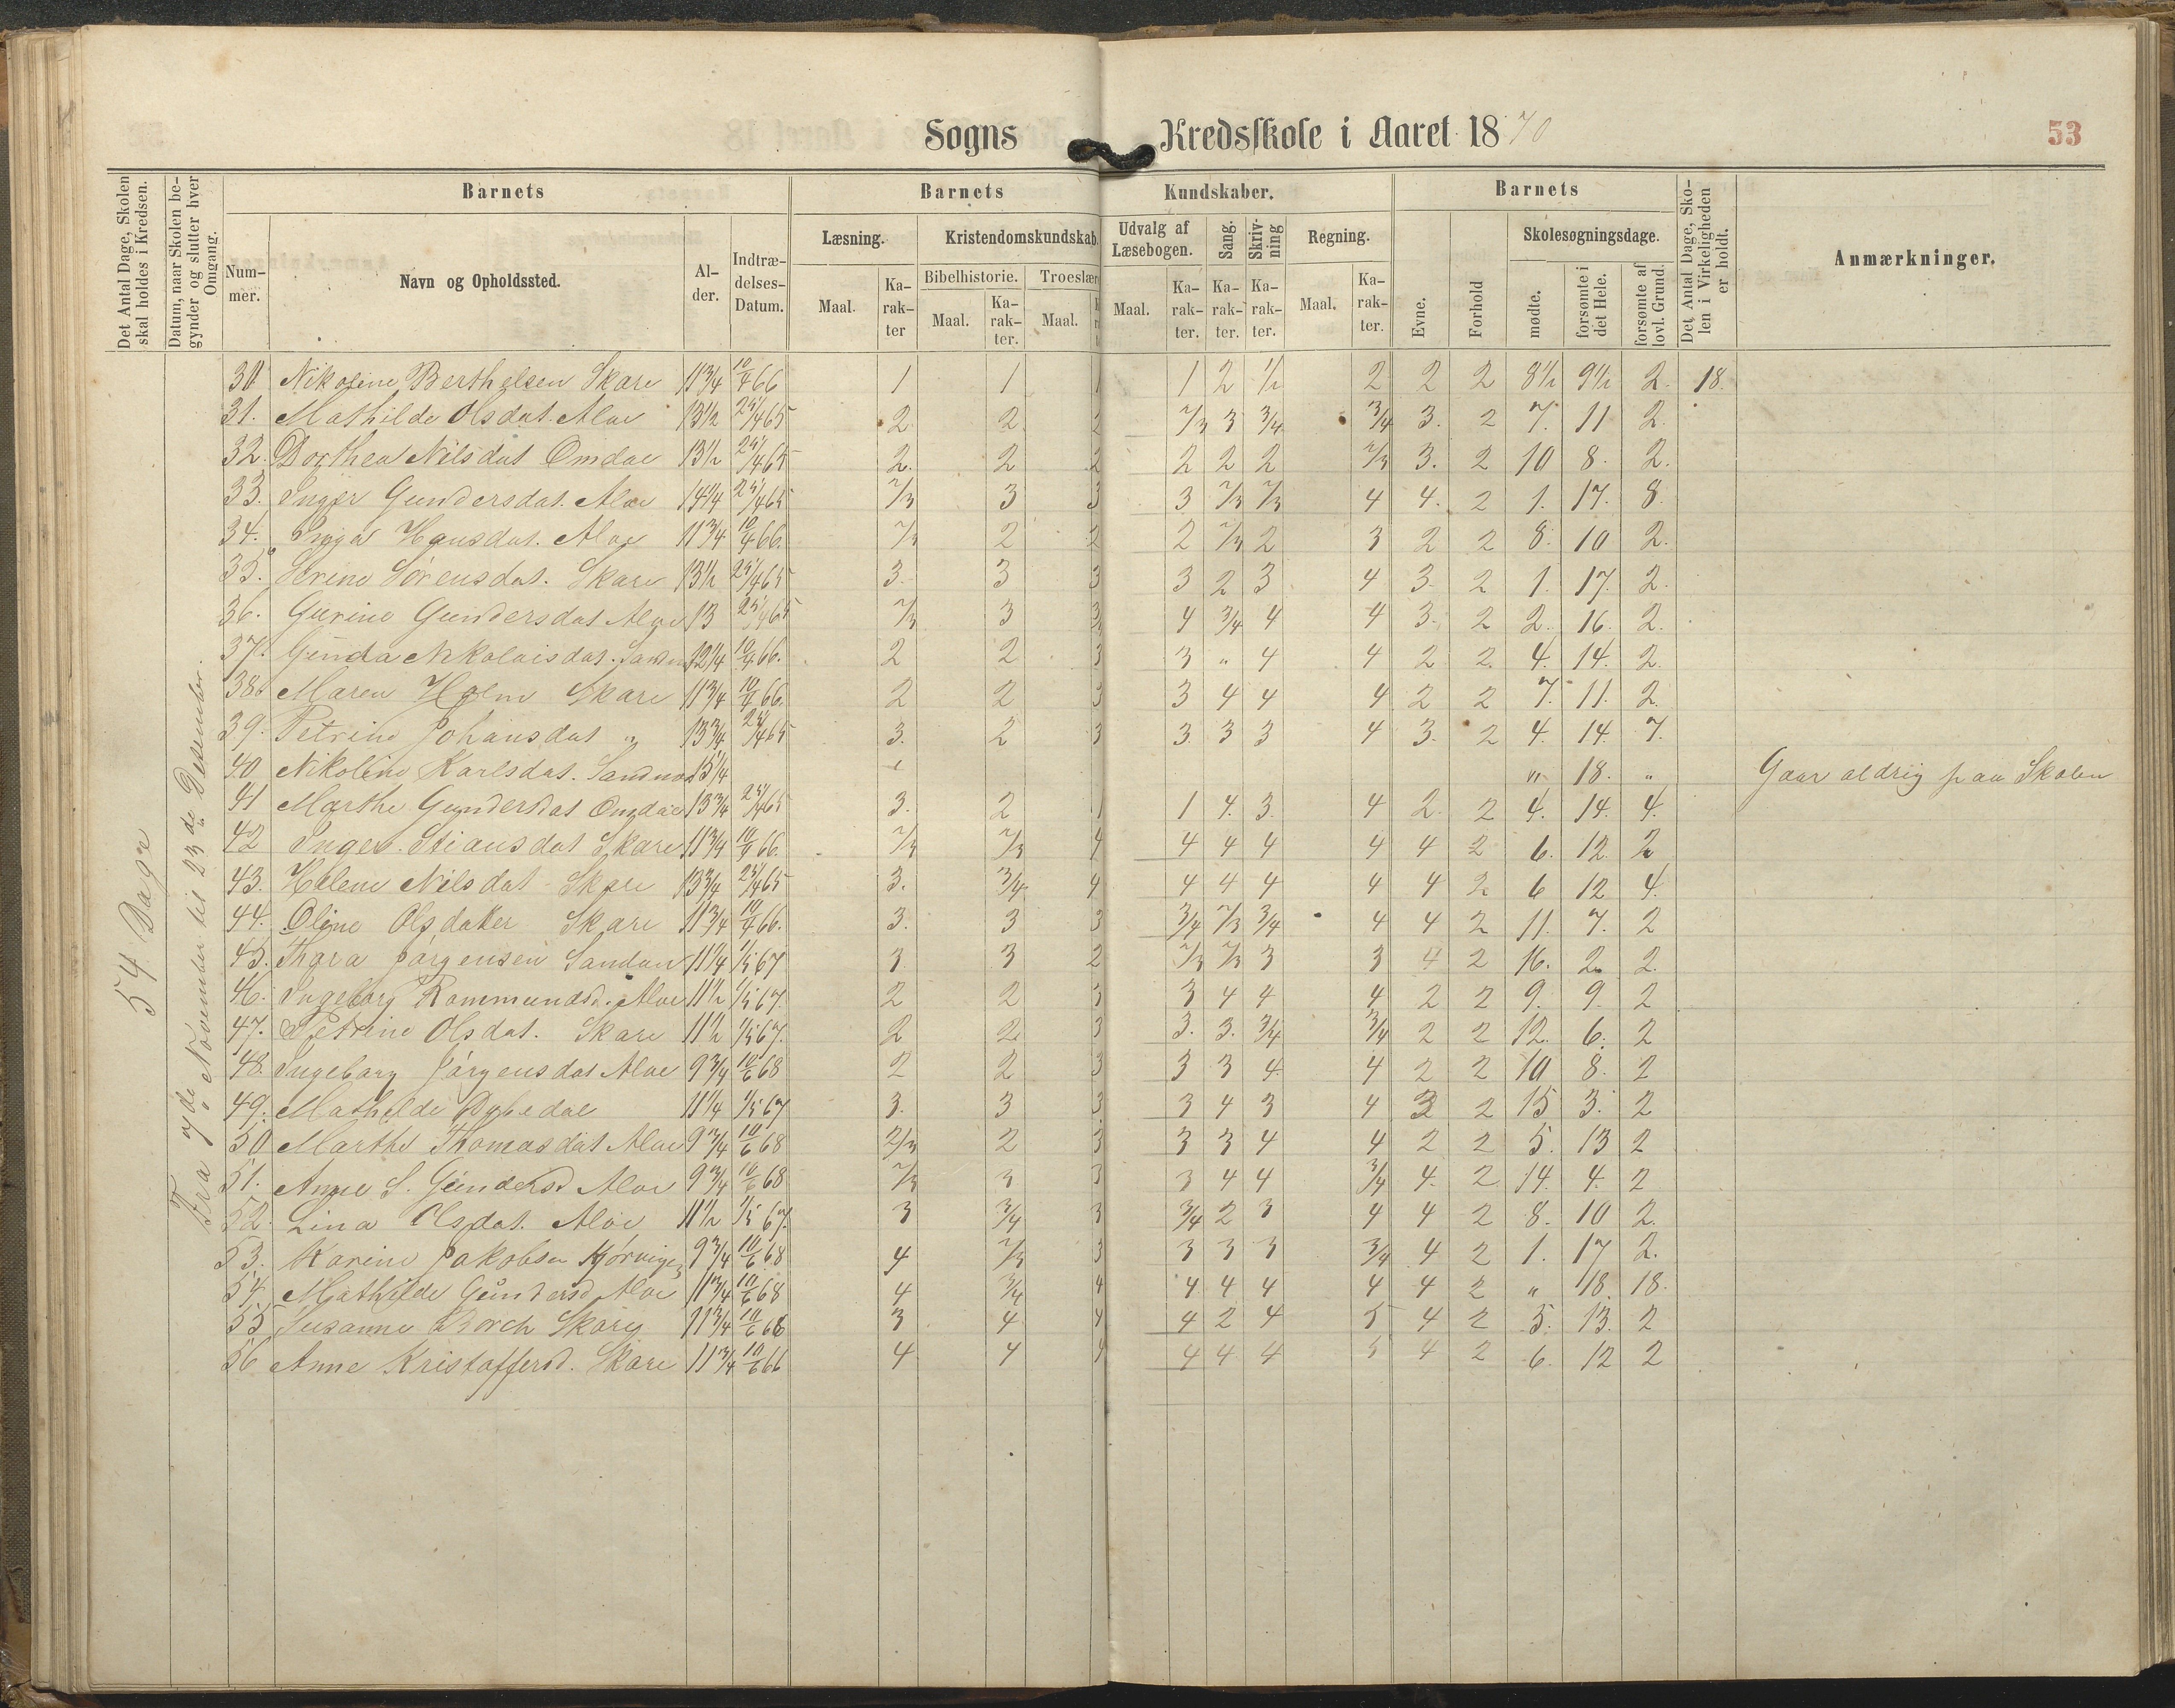 Sogns Kredsskole i Aaret 1870
53
Det Antal Dage, Skolen skal holdes i Kredsen.
Datum, naar Skolen begynder og slutter hver Omgang.
Barnets
Nummer.
Navn og Opholdssted.
Alder.
Indtrædelses-Datum.
Barnets Kundskaber.
Læsning.
Maal.
Karakter
Kristendomskundskab.
Bibelhistorie.
Maal.
Karakter.
Troeslær
Maal.
Udvalg af Læsebogen.
Maal.
Karakter.
Sang.
Karakter.
Skrivning
Karakter.
Regning.
Maal.
Karakter.
Barnets
Evne.
Forhold
Skolesøgningsdage.
mødte.
forsømte i det Hele.
forsømte af lovl. Grund.
Det Antal Dage, Skolen i Virkeligheden er holdt.
Anmærkninger.
54 Dage
Fra 7de November til 23de Desember.
30 Nikoline Berthelsen Skare 11 3/4 10/4 66 1 1 1 1 2 1/2 2 2 2 8 1/2 9 1/2 2. 18.
31. Mathilde Olsdat. Aloe 13 1/2 25/4 65 2. 2. 2 2/3 3 3/4 3/4 3. 2 7. 11 2.
32. Dorthea Nilsdat Omdal 13 1/2 25/4 65 2. 2 2 2 2 2 2/3 3. 2 10 8. 2.
33. Inger Gundersdat. Aloe 14 1/4 25/4 65 2/3 3 3 3 2/3 2/3 4 4. 2 1. 17. 8.
34. Inga Hansdat. Aloe 11 3/4 10/4 66. 2/3 2 2 2 2/3 2 3 2 2 8. 10 2.
35. Serine Sørensdat. Skare 13 1/2 25/4 65 3. 3 3 3 2 3 4 3. 2 1. 17. 2.
36. Gurine Gundersdat Aloe 13 25/4 65 2/3 3 3/4 4 3/4 4 4 3. 2 2. 16. 2.
37. Gunda Nikolaisdat. 12 1/4 10/4 66. 2 2 3 3 " 4 4 2 2 4. 14. 2.
38. Maren Holm Skare 11 3/4 10/4 66. 2 2 3 3 4 4 4 2 2 7. 11. 2.
39. Petrine Johansdat " 13 3/4 25/4 65 3. 2 3 3. 3 3 4 3. 2 4. 14. 7.
40 Nikoline Karlsdat. 15 1/4 " 18. " Gaar aldrig paa Skolen
41 Marthe Gundersdat Omdal 13 3/4 25/4 65 3. 2 1 1 4. 3. 4 2. 2 4. 14. 4.
42 Inger Stiansdat Skare 11 3/4 10/4 66. 2/3 2/3 4 4 4 4 4 4 2 6. 12. 2
43. Helene Nilsdat Skare 13 3/4 25/4 65 3. 3/4 4 4 4 4 4 4 2 6 12 4.
44. Oline Olsdatter Skare 11 3/4 10/4 66. 3. 3 3 3/4 2/3 3/4 4 4 2 11. 7. 2
45. Thora Jørgensen 11 1/4 1/5 67 3 3 2 2/3 2/3 3 3 4 2 16. 2. 2.
46. Ingeborg Rommundsd. Aloe 11 1/2 1/5 67. 2 2 3 3 4 4 4 2 2 9. 9. 2
47. Petrine Olsdat. Skare 11 1/2 1/5 67. 2 2 3 3. 3. 3/4 3/4 2 2 12. 6. 2
48. Ingeborg Jørgensdat Aloe 9 3/4 10/6 68 2 2 3 3 3 4. 4 2 2 10 8. 2
49. Mathilde Dybedal 11 1/4 1/5 67 3. 3 3. 3 4 3 4 3 2 15 3. 2
50 Marthe Thomasdat Aloe 9 3/4 10/6 68 2/3 2 3 3 3 4 4 2 2 5. 13 2
51. Anne S. Gundersd Aloe 9 3/4 10/6 68 2/3 3 3 3 4 4 3/4 4. 2 14. 4. 2
52. Lina Olsdat. Aloe 11 1/2 1/5 67. 3 3/4 3 3/4 2 3 4 4 2 8. 10 2.
53. Karine Jakobsen 9 3/4 10/6 68 4 2/3 3 3 3 3 3/4 4 2 1. 17 2.
54. Mathilde Gundersd Aloe 11 3/4 10/6 68 4 3/4 4 4 4 4 4 4 2 " 18. 18.
55 Susanne Borch Skare 11 3/4 10/6 66 3 4 4 4 2 4 5 4 2 5. 13. 2
56 Anne Kristoffersd. Skare 11 3/4 10/6 66 4 4 4 4 4 4 5 4 2 6. 12 2